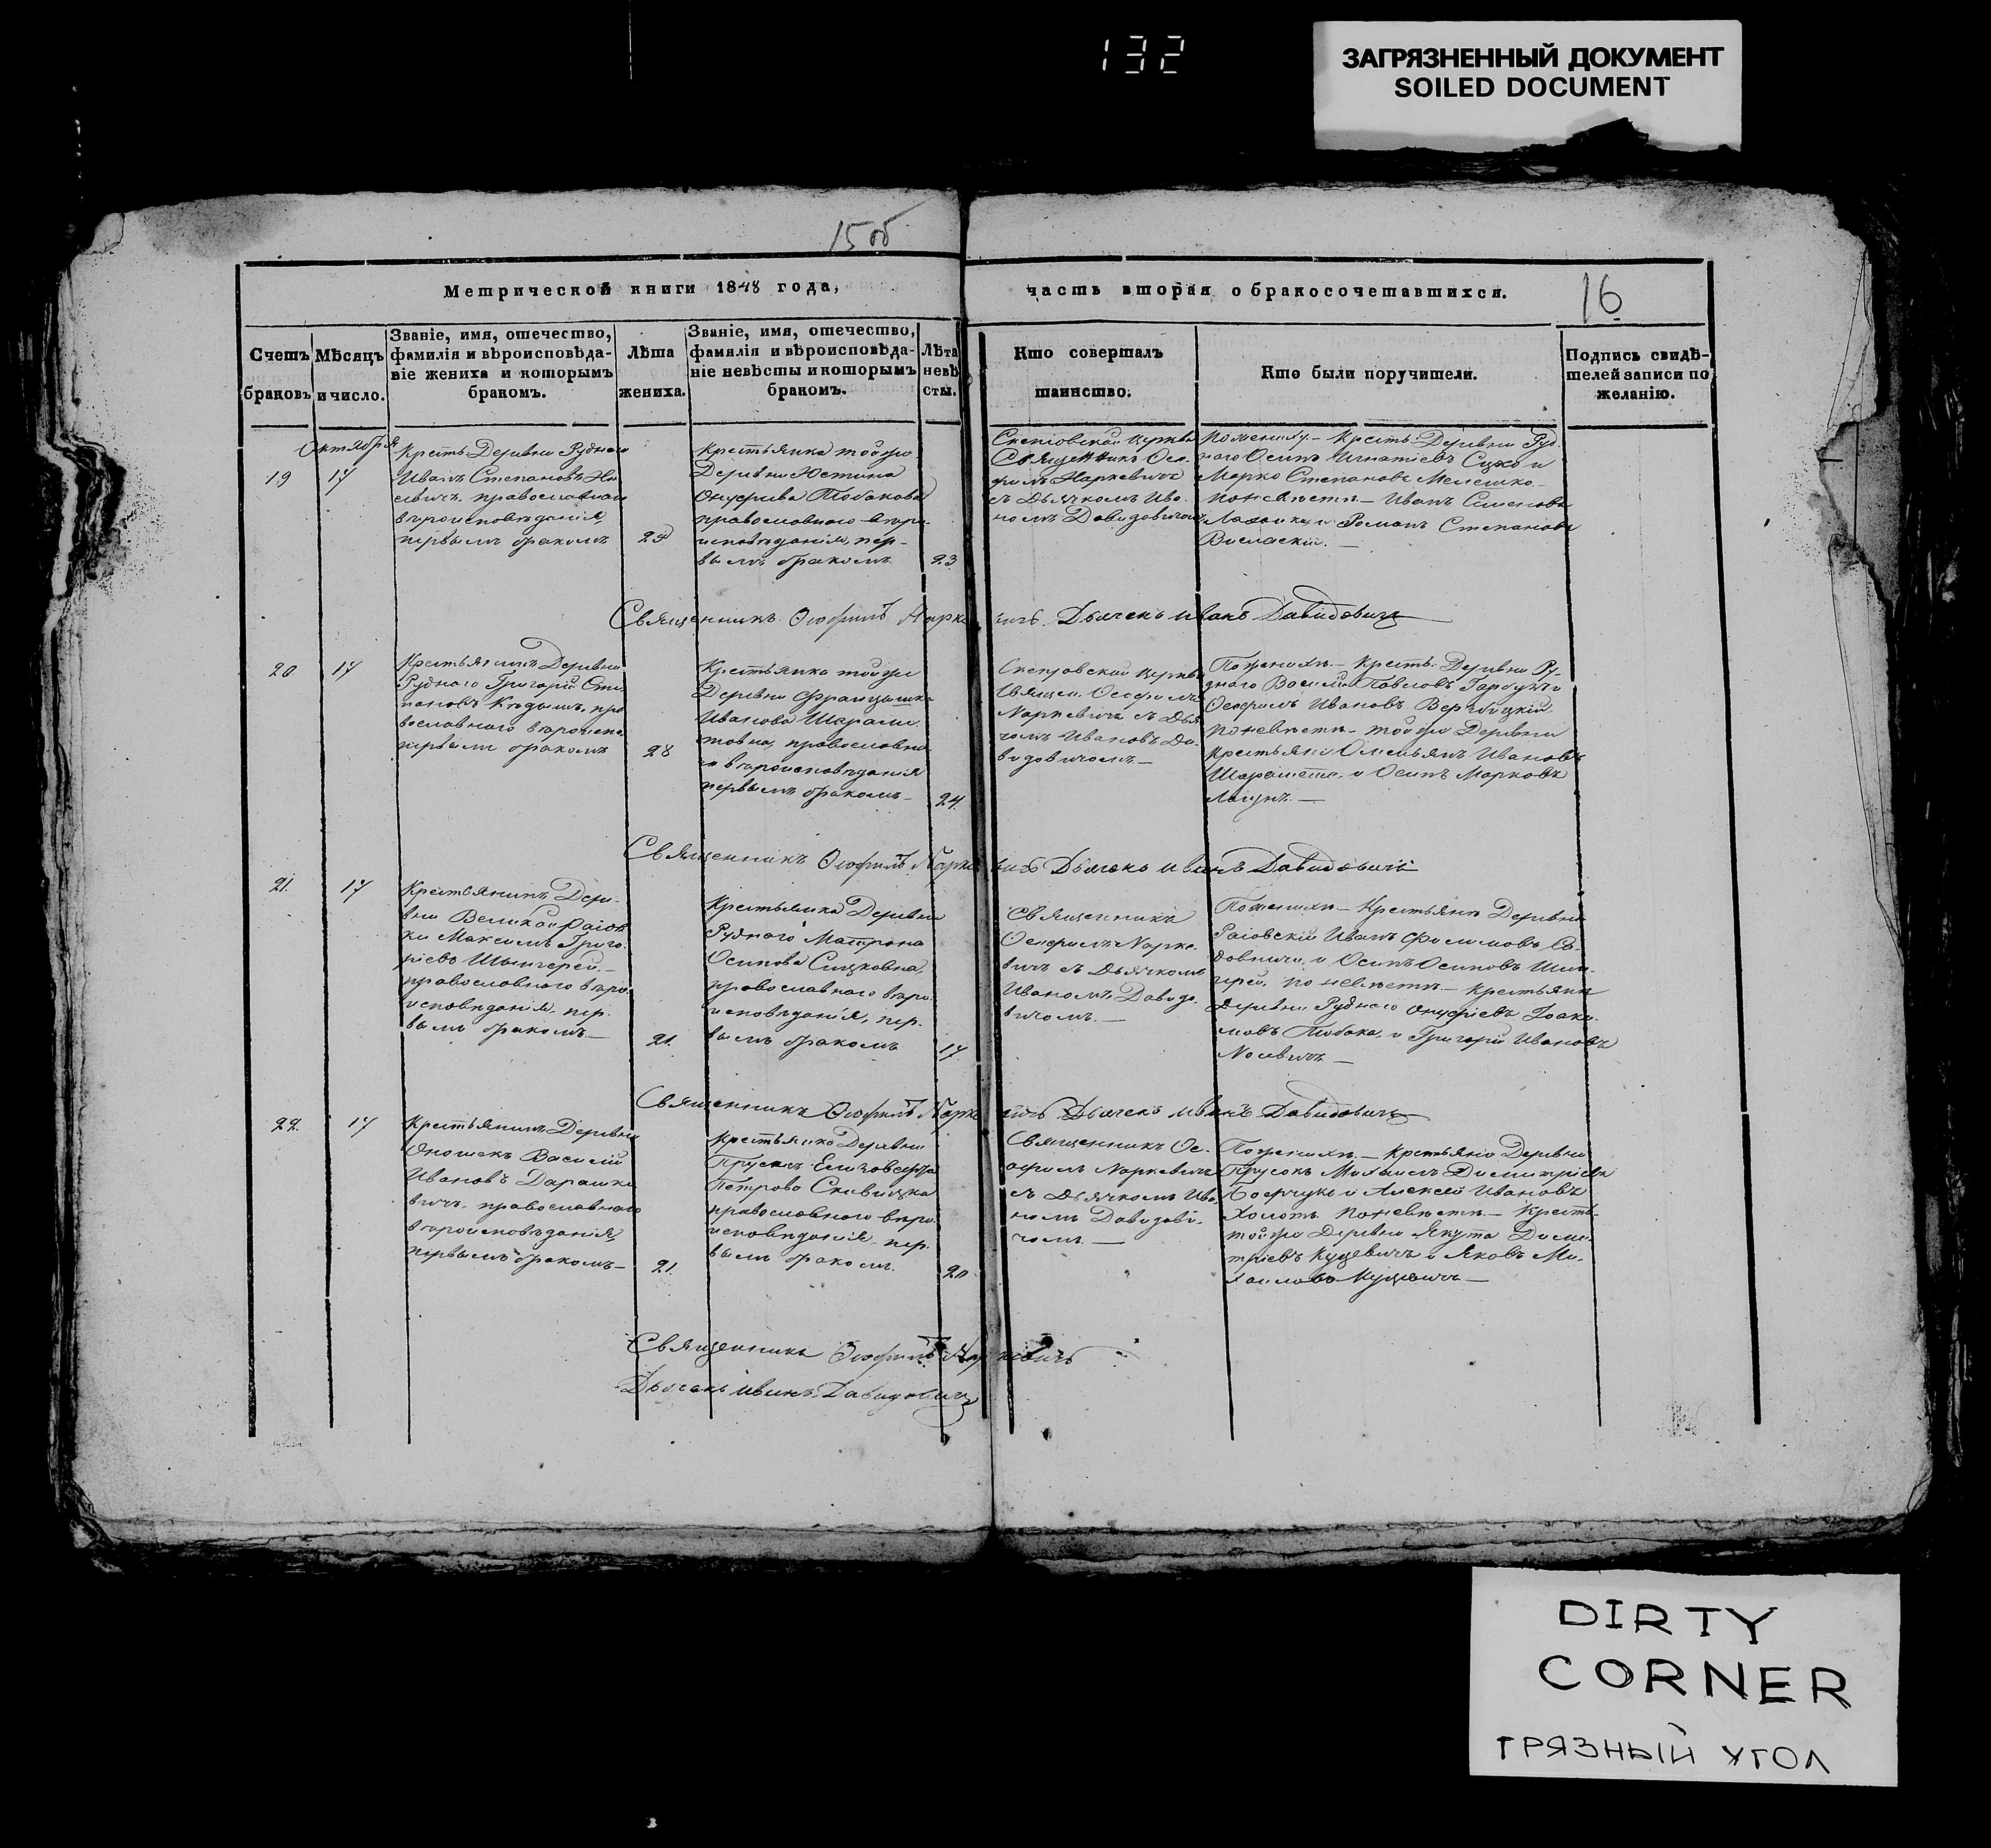 132
ЗАГРЯЗНЕННЫЙ ДОКУМЕНТ
SOILED DOCUMENT
15 об
Метрической книги 1848 года,
часть вторая о бракосочетавшихся.
16
Счетъ браковъ
Мѣсяцъ и число.
Званіе, имя, отечество,
фамилія и вѣроисповѣда-
ніе жениха и которымъ
бракомъ.
Лѣта
жениха.
Званіе, имя, отечество,
фамилія и вѣроисповѣда-
ніе невѣсты и которымъ
бракомъ.
Лѣта
невѣ
сты.
Кто совершалъ
таинство.
Кто были поручители.
Подпись свидѣ-
телей записи по
желанію.
Октября
19
17
Крестьÿ Деревни Руднаго
Иванъ Степановъ
православнаго
вѣроисповѣданія,
первымъ бракомъ
25
Крестьянка тойже
Деревни Юстина
Онуфріева Тобакова
православнаго вѣро-
исповѣданія, пер-
вымъ бракомъ
23
церкви
Священникъ Ѳео-
филъ Наркевичъ
съ Дьячкомъ Ива-
номъ Давидовичомъ
Пожениху – Крестьÿ Деревни Руд-
наго Осипъ Игнатіевъ Сицко и
Марко Степановъ Мелешко –
поневѣстѣ – Иванъ Семеновъ
и Романъ Степановъ
Священникъ Ѳеофилъ Наркевичъ Дьячекъ Иванъ Давидовичъ
20
17
Крестьянинъ Деревни
Руднаго Григорій Сте-
пановъ пра
вославнаго вѣроиспо
первымъ бракомъ
28
Крестьянка тойже
Деревни Францишка
Иванова Шараме
товна, православна
го вѣроисповѣданія
первымъ бракомъ –
24.
церкви
Священ. Ѳеофилъ
Наркевичъ съ Дья
чомъ Иваномъ Да-
видовичомъ –
Пожениху – Крестьÿ Деревни Ру-
днаго Василій Павловъ и
Ѳеофилъ Ивановъ Вержбицкій
поневѣстѣ – тойже Деревни
крестьяне Омельянъ Ивановъ
Шараметъ, и Осипъ Марковъ
Лагунъ. –
Священникъ Ѳеофилъ Наркевичъ Дьячекъ Иванъ Давидовичъ
21.
17
Крестьянинъ Дере-
вни Великой Раюв
ки Максимъ Григо
ріевъ Шынгерей –
православнаго вѣро
исповѣданія, пер-
вымъ бракомъ –
21.
Крестьянка Деревни
Руднаго Матрона
Осипова Сицковна,
православнаго вѣро
исповѣданія, пер-
вымъ бракомъ
17
Священникъ
Ѳеофилъ Нарке-
вичъ съ Дьячкомъ
Иваномъ Давидо-
вичомъ. –
Пожениху – Крестьяне Деревни
Иванъ
и Осипъ Осиповъ Шин-
герей, поневѣстѣ – крестьяне
Деревни Руднаго Онуфріевъ Іоаки-
мовъ Тобака, и Григорій Ивановъ
Священникъ Ѳеофилъ Наркевичъ Дьячекъ Иванъ Давидовичъ
22.
17
Крестьянинъ Деревни
Оношекъ Василій
Ивановъ Дарашке
вичъ, православнаго
вѣроисповѣданія,
первымъ бракомъ –
21.
Крестьянка Деревни
Прусокъ Елизавефта
Петрова Савицка
православнаго вѣро
исповѣданія пер-
вымъ бракомъ.
20
Священникъ Ѳе-
офилъ Наркевичъ
съ Дьячкомъ Ива
номъ Давидови-
чомъ –
Пожениху. – Крестьяне Деревни
Прусокъ Михаилъ Димитріевъ
и Алексей Ивановъ
Холотъ поневѣстѣ – Крестьÿ
тойже Деревни Якута Дими-
тріевъ Куцевичъ и Яковъ Ми-
хаиловъ Куцевичъ –
Священникъ Ѳеофилъ Наркевичъ
Дьячекъ Иванъ Давидовичъ
DIRTY
CORNER
ГРЯЗНЫЙ УГОЛ